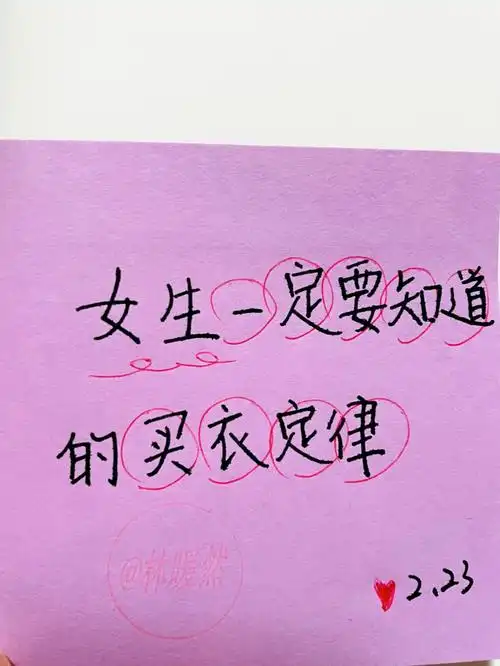 女生一定要知道
的买衣定律
@林暖然
2.23